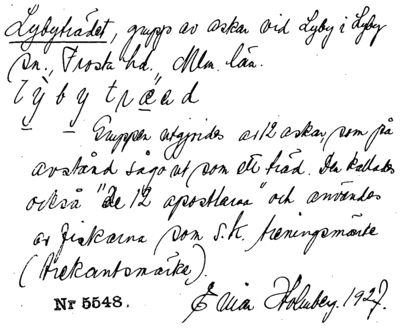 Lybyträdet, grupp av askar vid Lyby i Lyby
sn., Frosta hd. Mlm. län.
lỳbytræad
Gruppen utgjordes av 12 askar, som på
avstånd sågo ut som ett träd. Den kallades
också "de 12 apostlarna" och användes
av fiskarna som s.k. treningsmärke
(trekantsmärke).
Nr 5548. Elnar Holmberg. 1927.